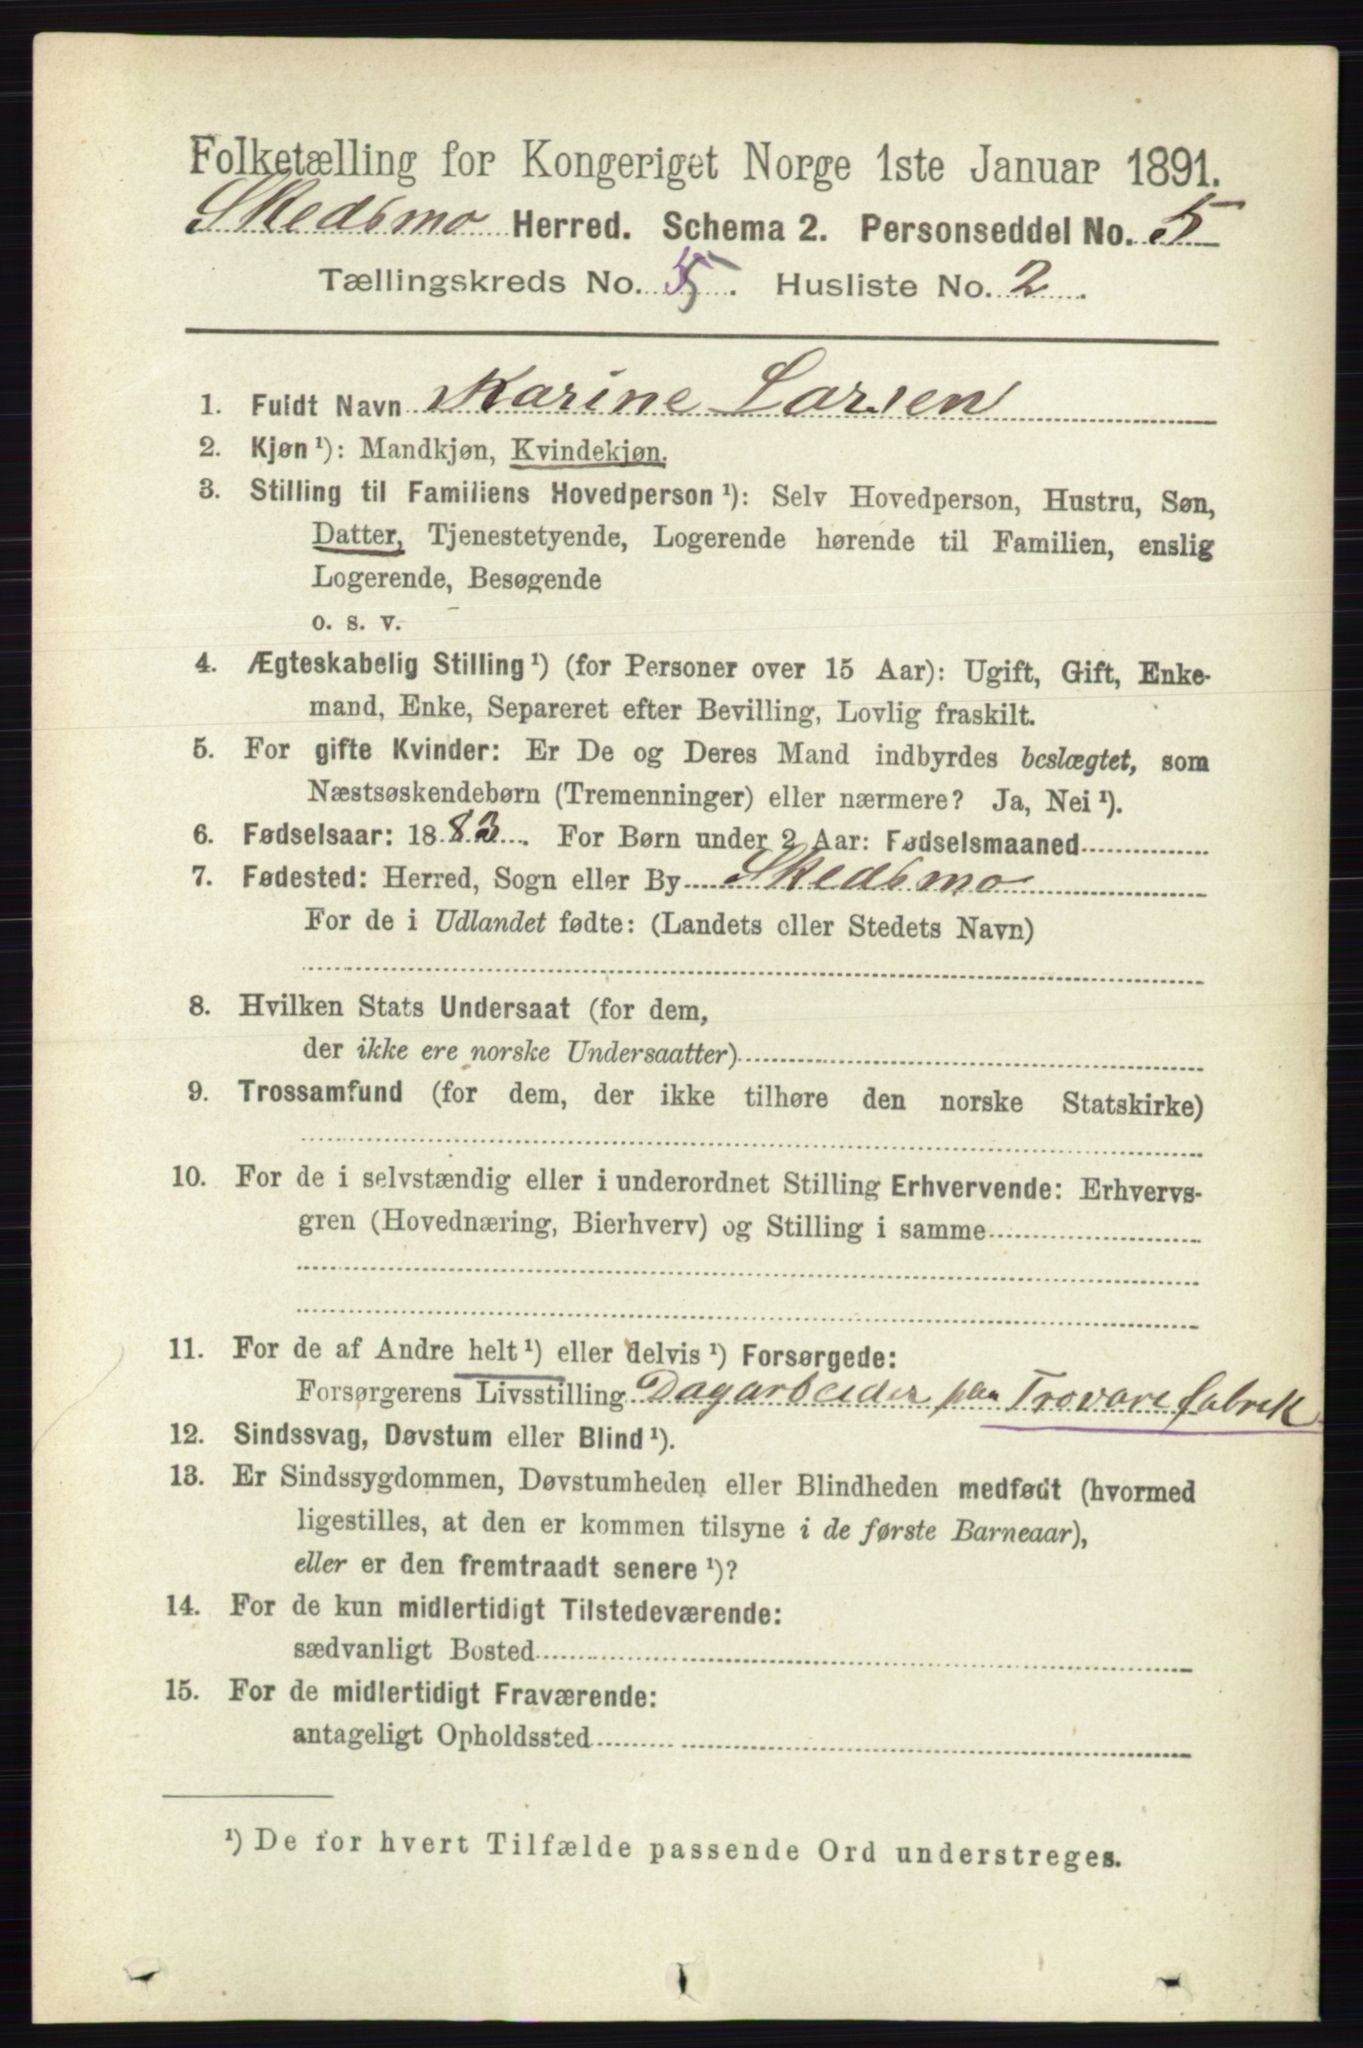 Folketælling for Kongeriget Norge 1ste Januar 1891.
Skedsmo Herred. Schema 2. Personseddel No. 5
Tællingskreds No. 5. Husliste No. 2.
1. Fuldt Navn Karine Larsen
2. Kjøn¹): Mandkjøn, Kvindekjøn.
3. Stilling til Familiens Hovedperson¹): Selv Hovedperson, Hustru, Søn,
Datter, Tjenestetyende, Logerende hørende til Familien, enslig
Logerende, Besøgende
o. s. v.
4. Ægteskabelig Stilling¹) (for Personer over 15 Aar): Ugift, Gift, Enke-
mand, Enke, Separeret efter Bevilling, Lovlig fraskilt.
5. For gifte Kvinder: Er De og Deres Mand indbyrdes beslægtet, som
Næstsøskendebørn (Tremenninger) eller nærmere? Ja, Nei¹).
6. Fødselsaar: 1883. For Børn under 2 Aar: Fødselsmaaned
7. Fødested: Herred, Sogn eller By Skedsmo
For de i Udlandet fødte: (Landets eller Stedets Navn)
8. Hvilken Stats Undersaat (for dem,
der ikke ere norske Undersaatter)
9. Trossamfund (for dem, der ikke tilhøre den norske Statskirke)
10. For de i selvstændig eller i underordnet Stilling Erhvervende: Erhvervs-
gren (Hovednæring, Bierhverv) og Stilling i samme
11. For de af Andre helt¹) eller delvis¹) Forsørgede:
Forsørgerens Livsstilling Dagarbeider paa Trovarefabrek
12. Sindssvag, Døvstum eller Blind¹).
13. Er Sindssygdommen, Døvstumheden eller Blindheden medfødt (hvormed
ligestilles, at den er kommen tilsyne i de første Barneaar),
eller er den fremtraadt senere¹)?
14. For de kun midlertidigt Tilstedeværende:
sædvanligt Bosted
15. For de midlertidigt Fraværende:
antageligt Opholdssted
¹) De for hvert Tilfælde passende Ord understreges.